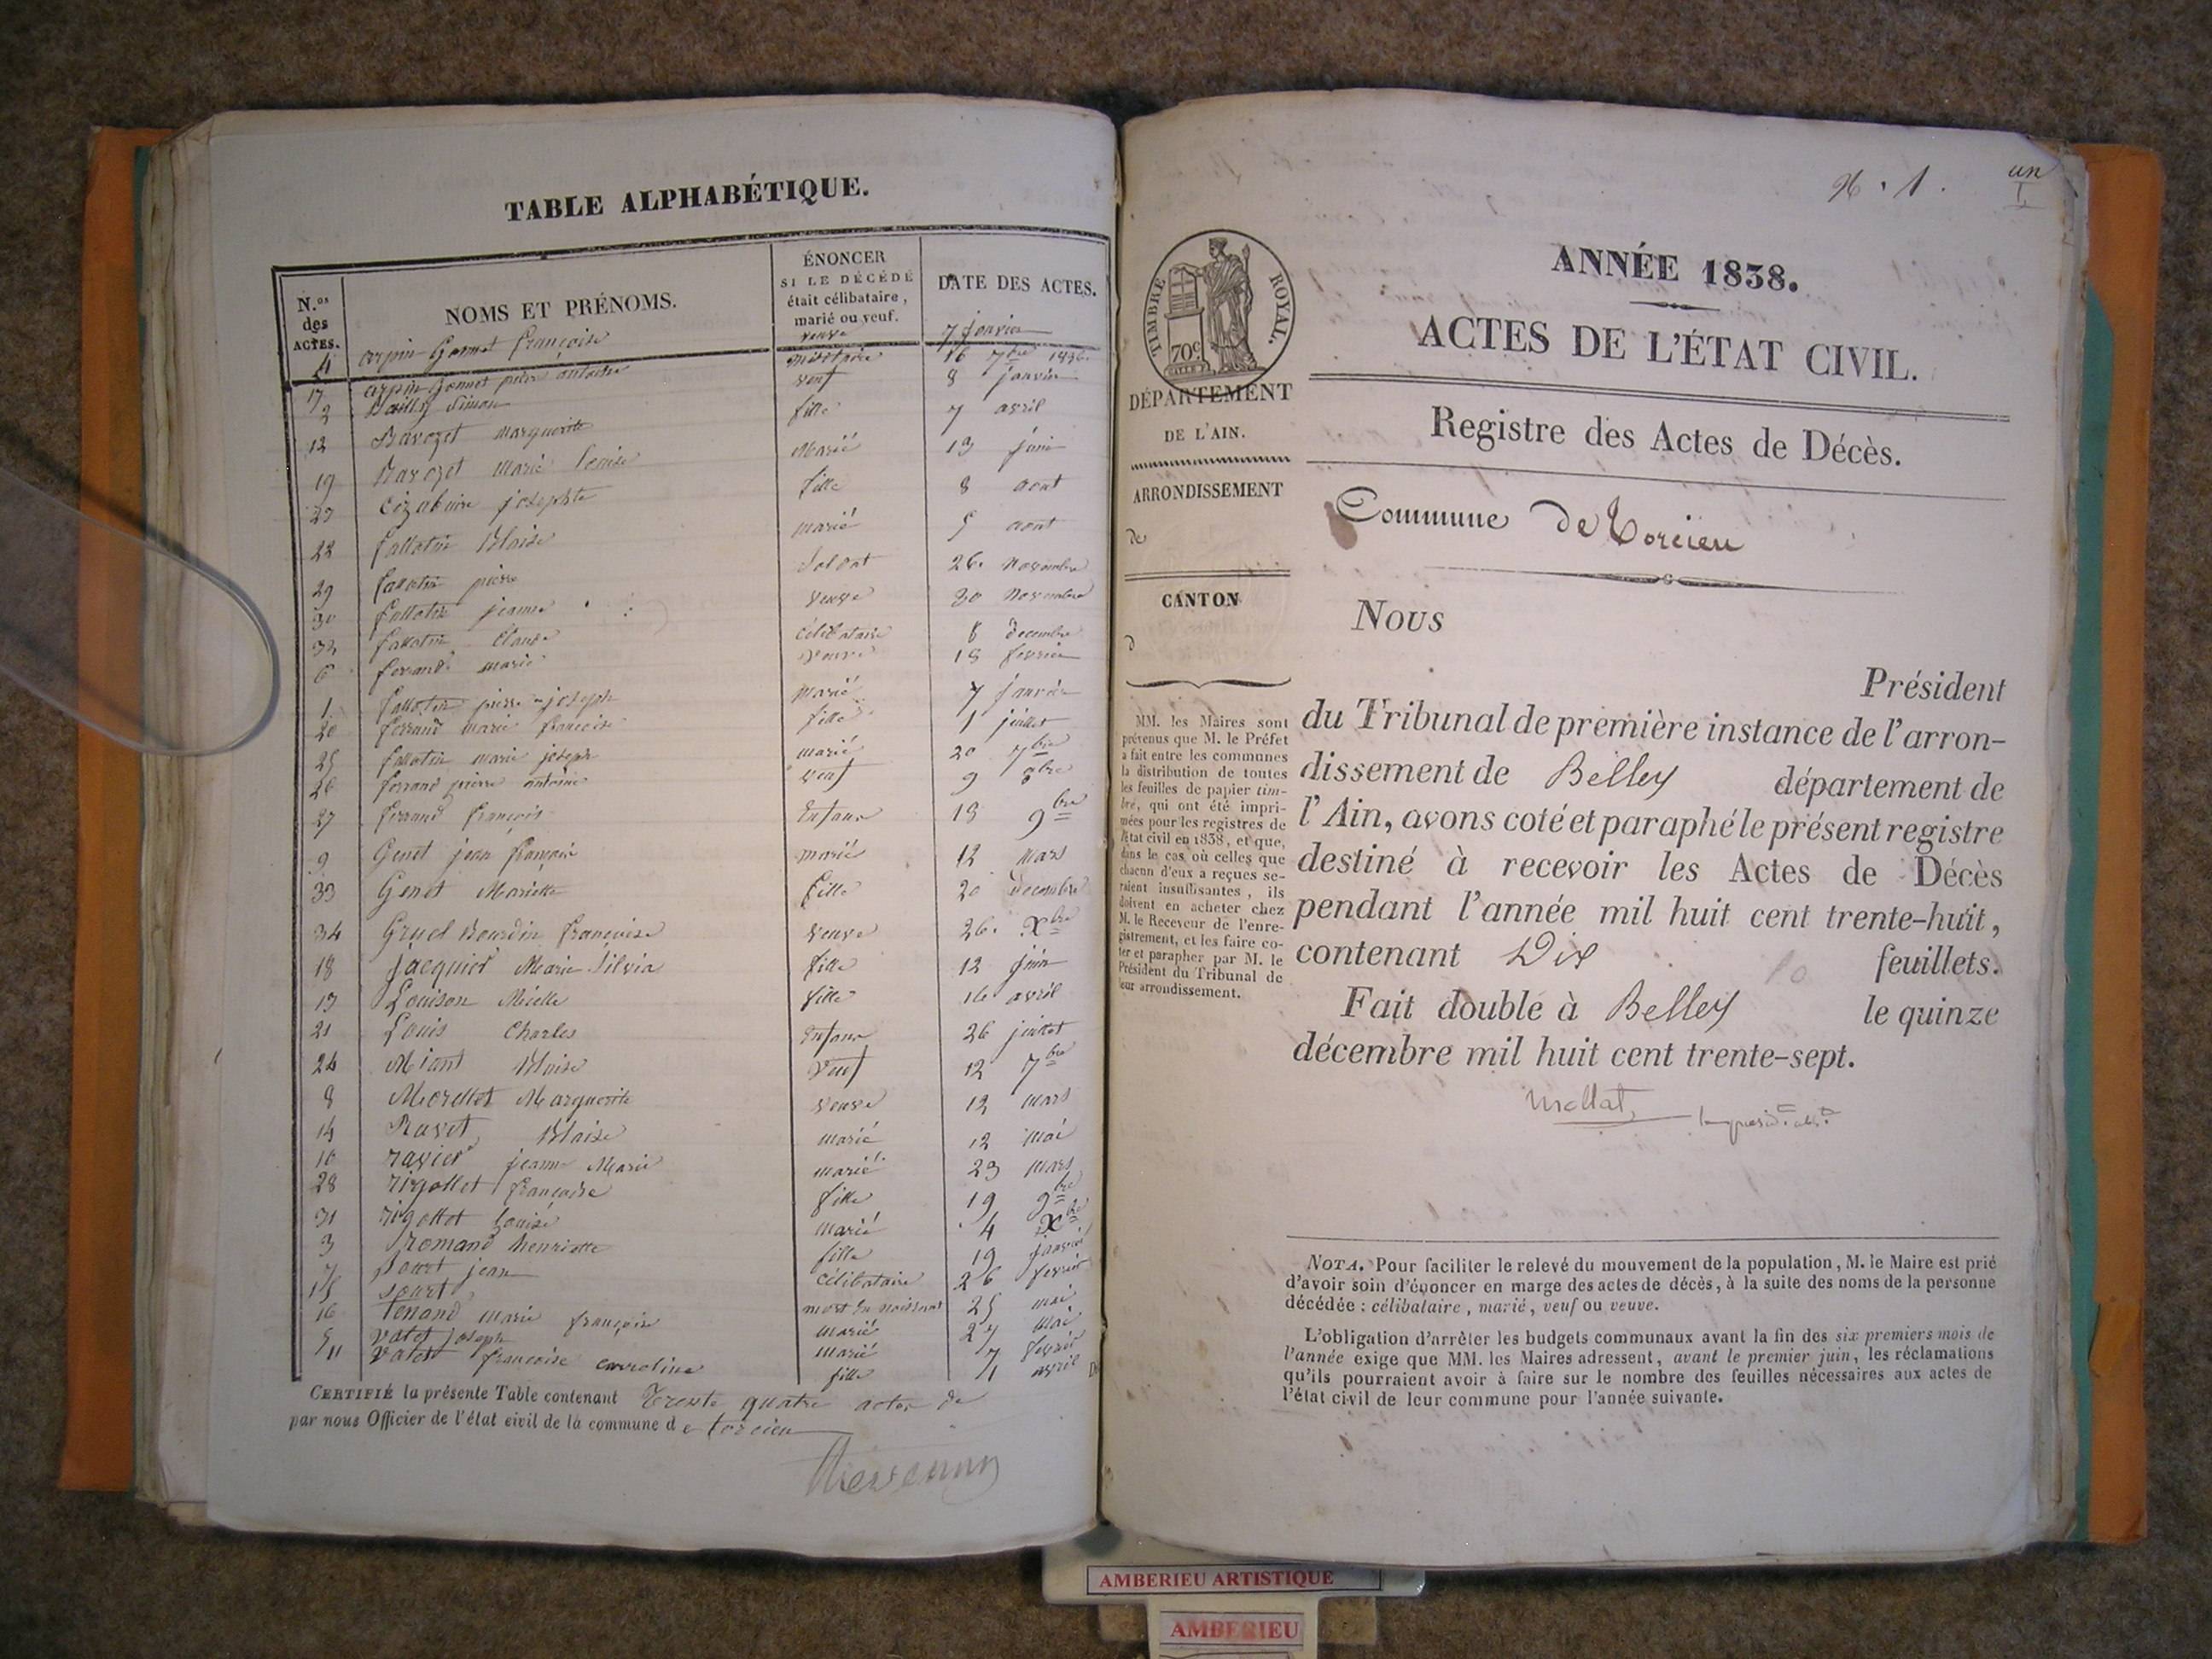 TABLE ALPHABÉTIQUE.
N.os des ACTES.
NOMS ET PRÉNOMS.
ÉNONCER SI LE DÉCÉDÉ était célibataire, marié ou veuf.
DATE DES ACTES.
4 arpin Gonnet françoise veuve 7 janvier
17 arpin Gonnet pierre antoine militaire 16 7bre 1836
2 Bailly Simon veuf 8 janvier
12 Bavozet marguerite fille 7 avril
19 Bavozet marie Marié 13 juin
23 josephte fille 8 aout
22 fallotin Blaise marié 5 aout
29 fallotin pierre Soldat 26. Novembre
30 fallotin jeanne veuve 30 Novembre
32 fallotin Claude célibataire 8 decembre
6 ferrand marie veuve 18 fevrier
1 fallotin pierre joseph marié 7 janvier
20 ferrand marie francoise fille 1 juillet
25 fallotin marie joseph marié 20 7bre
26 ferrand pierre antoine veuf 9 8bre
27 ferrand françois Enfant 18 9bre
9 Genet jean françois marié 12 mars
33 Genet Mariette fille 20 decembre
34 Gruel Bourdin francoise veuve 26. Xbre
18 Jacquier Marie Silvia fille 12 juin
13 Louison Mielle fille 16 avril
21 Louis Charles Enfant 26 juillet
24 Miant Blaise veuf 12 7bre
8 Morellet Marguerite veuve 12 mars
14 Ravet Blaise marié 12 mai
10 ravier jeanne Marie marié 23 mars
28 rigollet francoise fille 19 9bre
31 rigollet Louise marié 4 Xbre
3 romand henriette fille 19 janvier
7 jean célibataire 26 fevrier
15 mort en naissant 25 mai
16 tenand marie françoise marié 27 mai
5 vatet joseph marié 7 fevrier
11 vatet francoise caroline fille 1 avril
CERTIFIÉ la présente Table contenant Trente quatre actes de
par nous Officier de l'état civil de la commune de torcieu
un
1
ANNÉE 1838.
ACTES DE L'ÉTAT CIVIL.
Registre des Actes de Décès.
Commune de Torcieu
TIMBRE ROYAL.
70c
DÉPARTEMENT
DE L'AIN.
ARRONDISSEMENT
de
CANTON
d
MM. les Maires sont
prévenus que M. le Préfet
a fait entre les communes
la distribution de toutes
les feuilles de papier tim-
bré, qui ont été impri-
mées pour les registres de
l'état civil en 1838, et que,
dans le cas où celles que
chacun d'eux a reçues se-
raient insuffisantes, ils
doivent en acheter chez
M. le Receveur de l'enre-
gistrement, et les faire co-
ter et parapher par M. le
Président du Tribunal de
leur arrondissement.
Nous
Président
du Tribunal de première instance de l'arron-
dissement de Belley département de
l'Ain, avons coté et paraphé le présent registre
destiné à recevoir les Actes de Décès
pendant l'année mil huit cent trente-huit,
contenant Dix 10 feuillets.
Fait double à Belley le quinze
décembre mil huit cent trente-sept.
NOTA. Pour faciliter le relevé du mouvement de la population, M. le Maire est prié
d'avoir soin d'énoncer en marge des actes de décès, à la suite des noms de la personne
décédée : célibataire, marié, veuf ou veuve.
L'obligation d'arrêter les budgets communaux avant la fin des six premiers mois de
l'année exige que MM. les Maires adressent, avant le premier juin, les réclamations
qu'ils pourraient avoir à faire sur le nombre des feuilles nécessaires aux actes de
l'état civil de leur commune pour l'année suivante.
AMBERIEU ARTISTIQUE
AMBERIEU